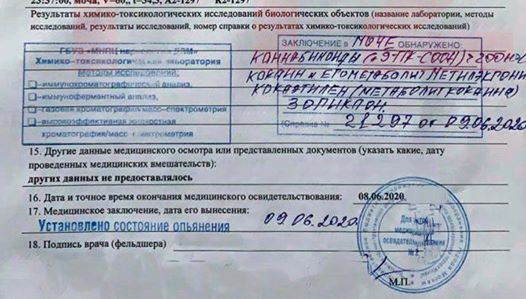 23:37:00, моча, V=60, t=34,5, А2-1297 К2-1297
Результаты химико-токсикологических исследований биологических объектов (название лаборатории, методы
исследований, результаты исследований, номер справки о результатах химико-токсикологических исследований)
ГБУЗ «МНПЦ наркологии ДЗМ»
Химико-токсикологическая лаборатория
Методы исследований:
–иммунохроматографический анализ,
–иммуноферментный анализ,
–газовая хроматография/масс-спектрометрия
–высокоэффективная жидкостная
хроматография/масс-спектрометрия
ЗАКЛЮЧЕНИЕ в МОЧЕ ОБНАРУЖЕНО:
КАННАБИНОИДЫ
КОКАИН и ЕГО МЕТАБОЛИТ МЕТИЛЭКГОНИН
КОКАЭТИЛЕН (МЕТАБОЛИТ КОКАИНА)
ЗОПИКЛОН
(Справка № 21297 от 09.06.2020
15. Другие данные медицинского осмотра или представленных документов (указать какие, дату
проведенных медицинских вмешательств):
других данных не предоставлялось
16. Дата и точное время окончания медицинского освидетельствования: 08.06.2020.
17. Медицинское заключение, дата его вынесения: 09.06.2020
Установлено состояние опьянения
18. Подпись врача (фельдшера)
М.П.
Для
медицинского
освидетельствования
№ 2